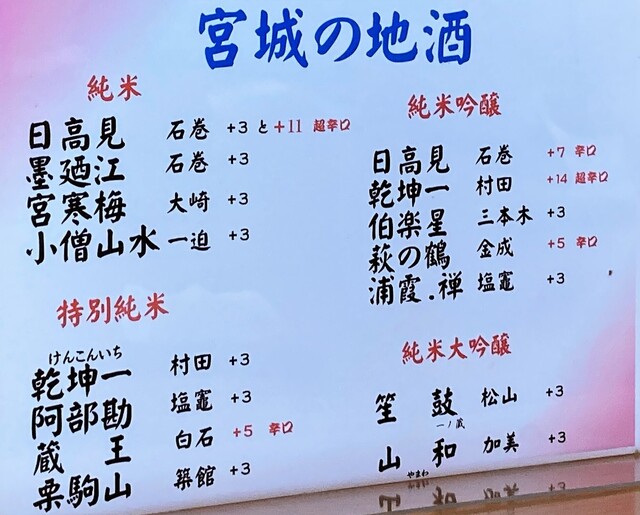 宮城の地酒
純米
日高見 石巻 +3 と +11 超辛口
墨廼江 石巻 +3
宮寒梅 大崎 +3
小僧山水 一迫 +3
特別純米
けんこんいち
乾坤一 村田 +3
阿部勘 塩竈 +3
蔵王 白石 +5 辛口
栗駒山 築館 +3
純米吟醸
日高見 石巻 +7 辛口
乾坤一 村田 +14 超辛口
伯楽星 三本木 +3
萩の鶴 金成 +5 辛口
浦霞.禅 塩竈 +3
純米大吟醸
笙鼓 松山 +3
一ノ蔵
山和 加美 +3
やまわ